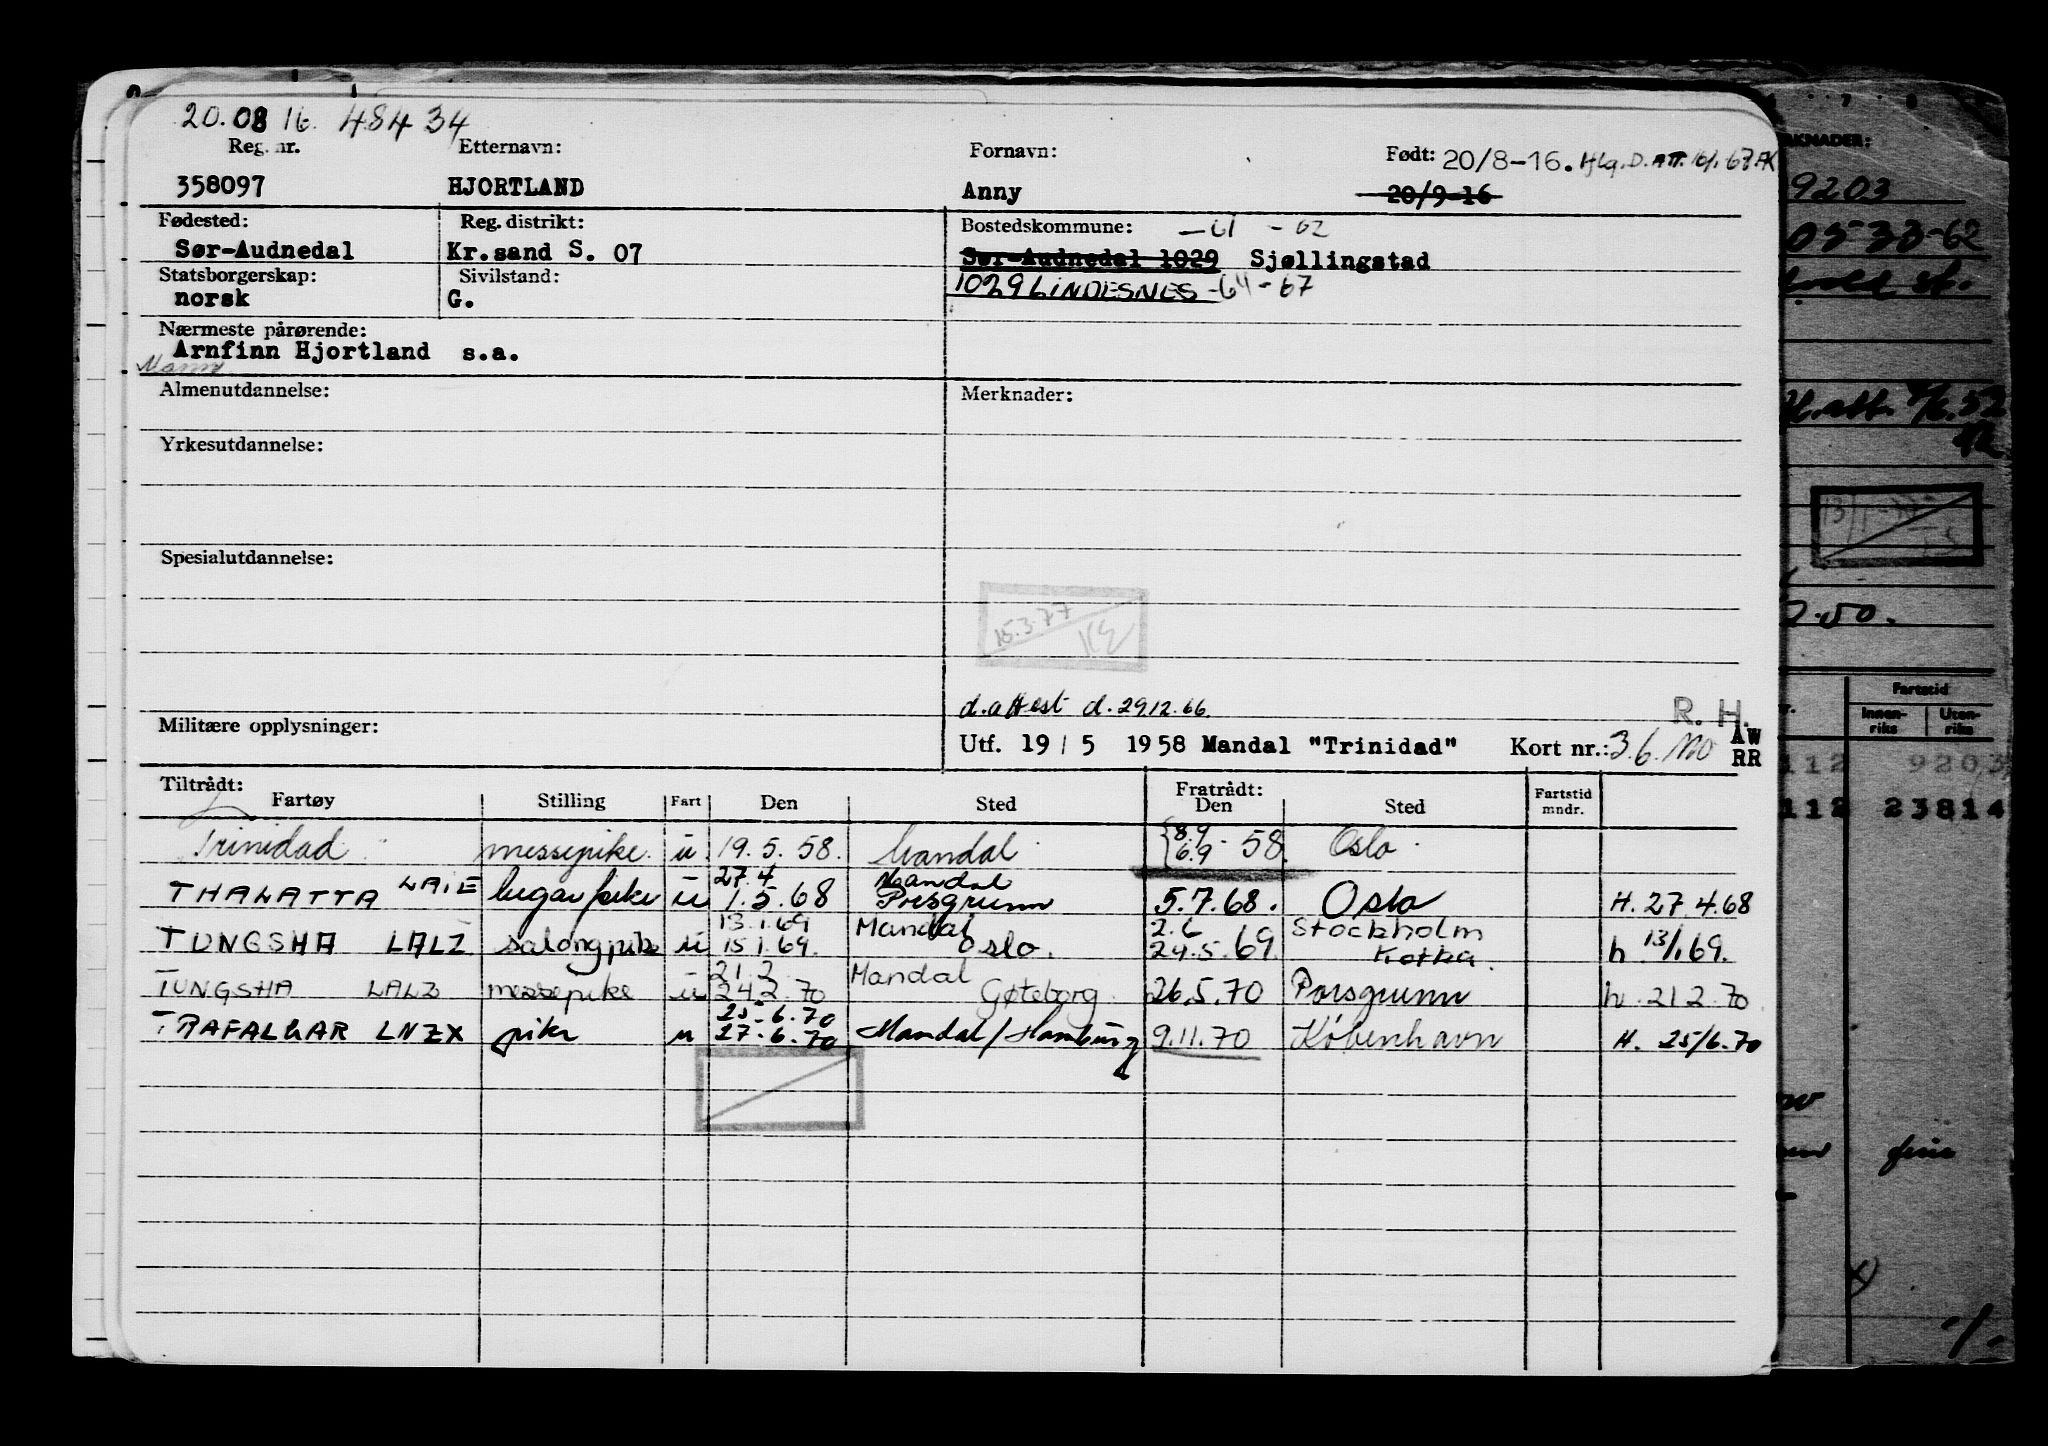 20.08 16. 48434
Reg. nr. Etternavn: Fornavn: Født: 20/8-16. Hlg. D. ATT. 10/1.67 AK
358097 HJORTLAND Anny 20/9-16
Fødested: Reg. distrikt: Bostedskommune: -61 -62
Sør-Audnedal Kr.sand S. 07 Sør-Audnedal 1029 Sjøllingstad
Statsborgerskap: Sivilstand: 1029 LINDESNES -64-67
norsk G.
Nærmeste pårørende:
Arnfinn Hjortland s.a.
Mann
Almenutdannelse: Merknader:
Yrkesutdannelse:
Spesialutdannelse:
15.3.77
KE
d.attest d. 29.12.66.
R. H.
Militære opplysninger: Utf. 19 / 5 1958 Mandal "Trinidad" Kort nr.: 3.6. mo ÅW
RR
Tiltrådt: Fratrådt:
Fartøy Stilling Fart Den Sted Den Sted Fartstid mndr.
Trinidad messepike. u. 19.5.58. Mandal 8.9 6.9 - 58. Oslo.
27.4 Mandal
THALATTA LAIE lugarpike u 1.5.68 Porsgrunn 5.7.68. Oslo H. 27.4.68
13.1.69 Mandal 2.6 Stockholm
TUNGSHA LALZ salongpike u 15.1.69. Oslo. 29.5.69. Kotka. h 13/1.69.
21.2 Mandal
TUNGSHA LALZ messepike u 24.2.70 Gøteborg. 26.5.70 Porsgrunn h. 21 2.70
25.6.70
TRAFALGAR LNZX pike u 27.6.70 Mandal/Hamburg 9.11.70 København H. 25/6.70
KNADER:
9203
0533-62
H.att. 7/6.52
2.50.
Fartstid
Innen-riks Uten-riks
112 920,3
112 23814
-/-